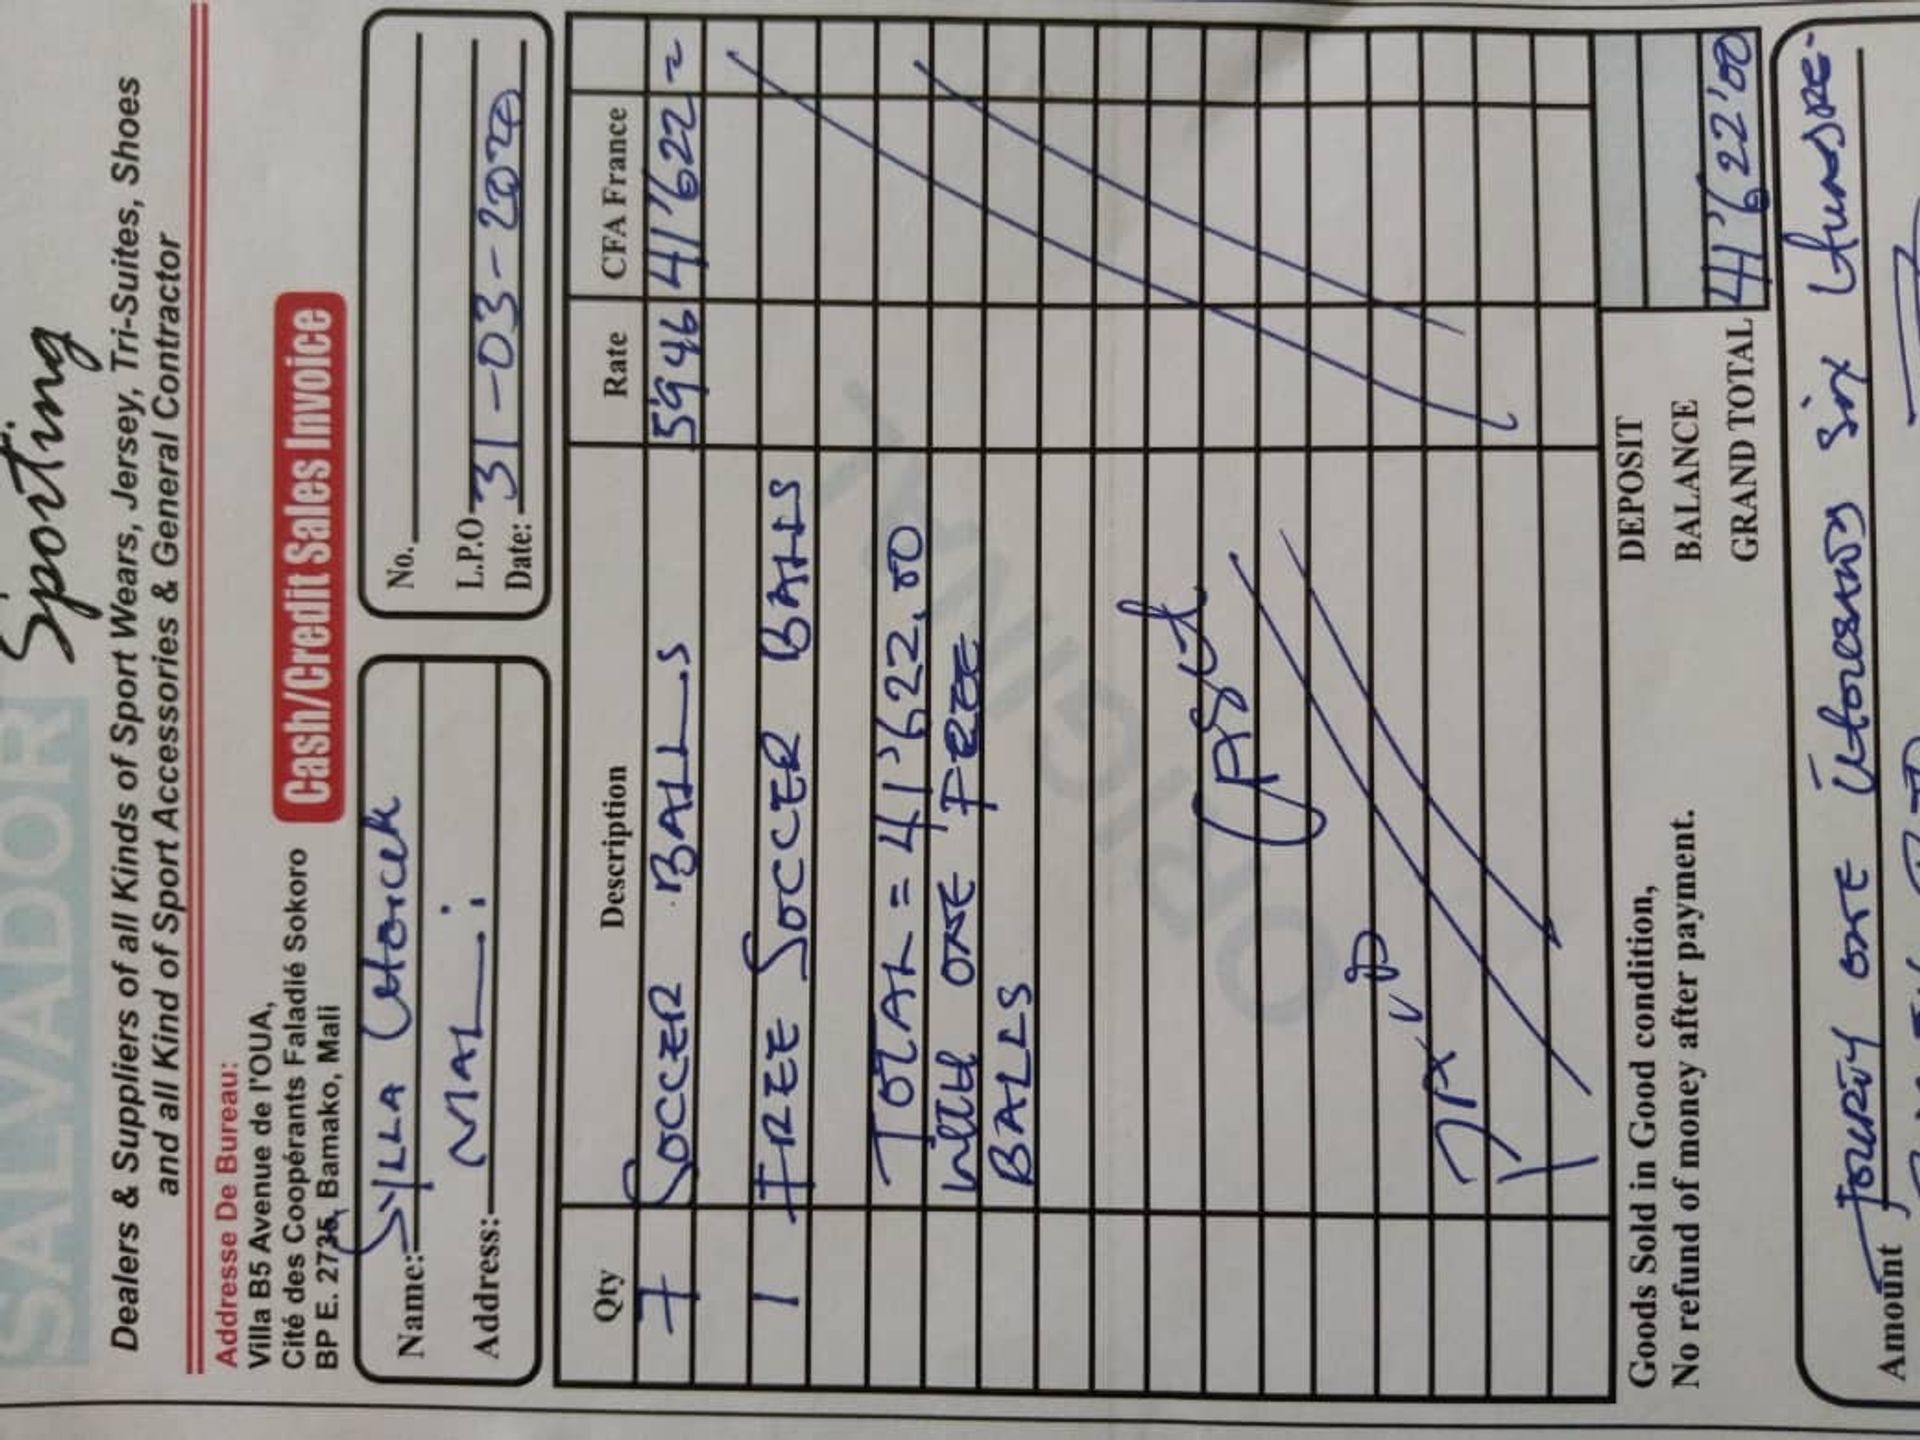 SALVADOR Sporting
Dealers & Suppliers of all Kinds of Sport Wears, Jersey, Tri-Suites, Shoes
and all Kind of Sport Accessories & General Contractor
Addresse De Bureau:
Villa B5 Avenue de l'OUA,
Cité des Coopérants Faladié Sokoro
BP E. 2735, Bamako, Mali
Cash/Credit Sales Invoice
Name: SYLLA
Address: MALi
No.
L.P.O
Date: 31-03-2020
Qty Description Rate CFA France
7 SOCCER BALLS 5946 41'622=
1 FREE SOCCER BALLS
TOTAL = 41'622.00
WITH ONE FREE
BALLS
ORIGINAL
Goods Sold in Good condition,
No refund of money after payment.
DEPOSIT
BALANCE
GRAND TOTAL 41'622'00
Amount FOURTY ONE THOUSAND SIX HUNDRE-